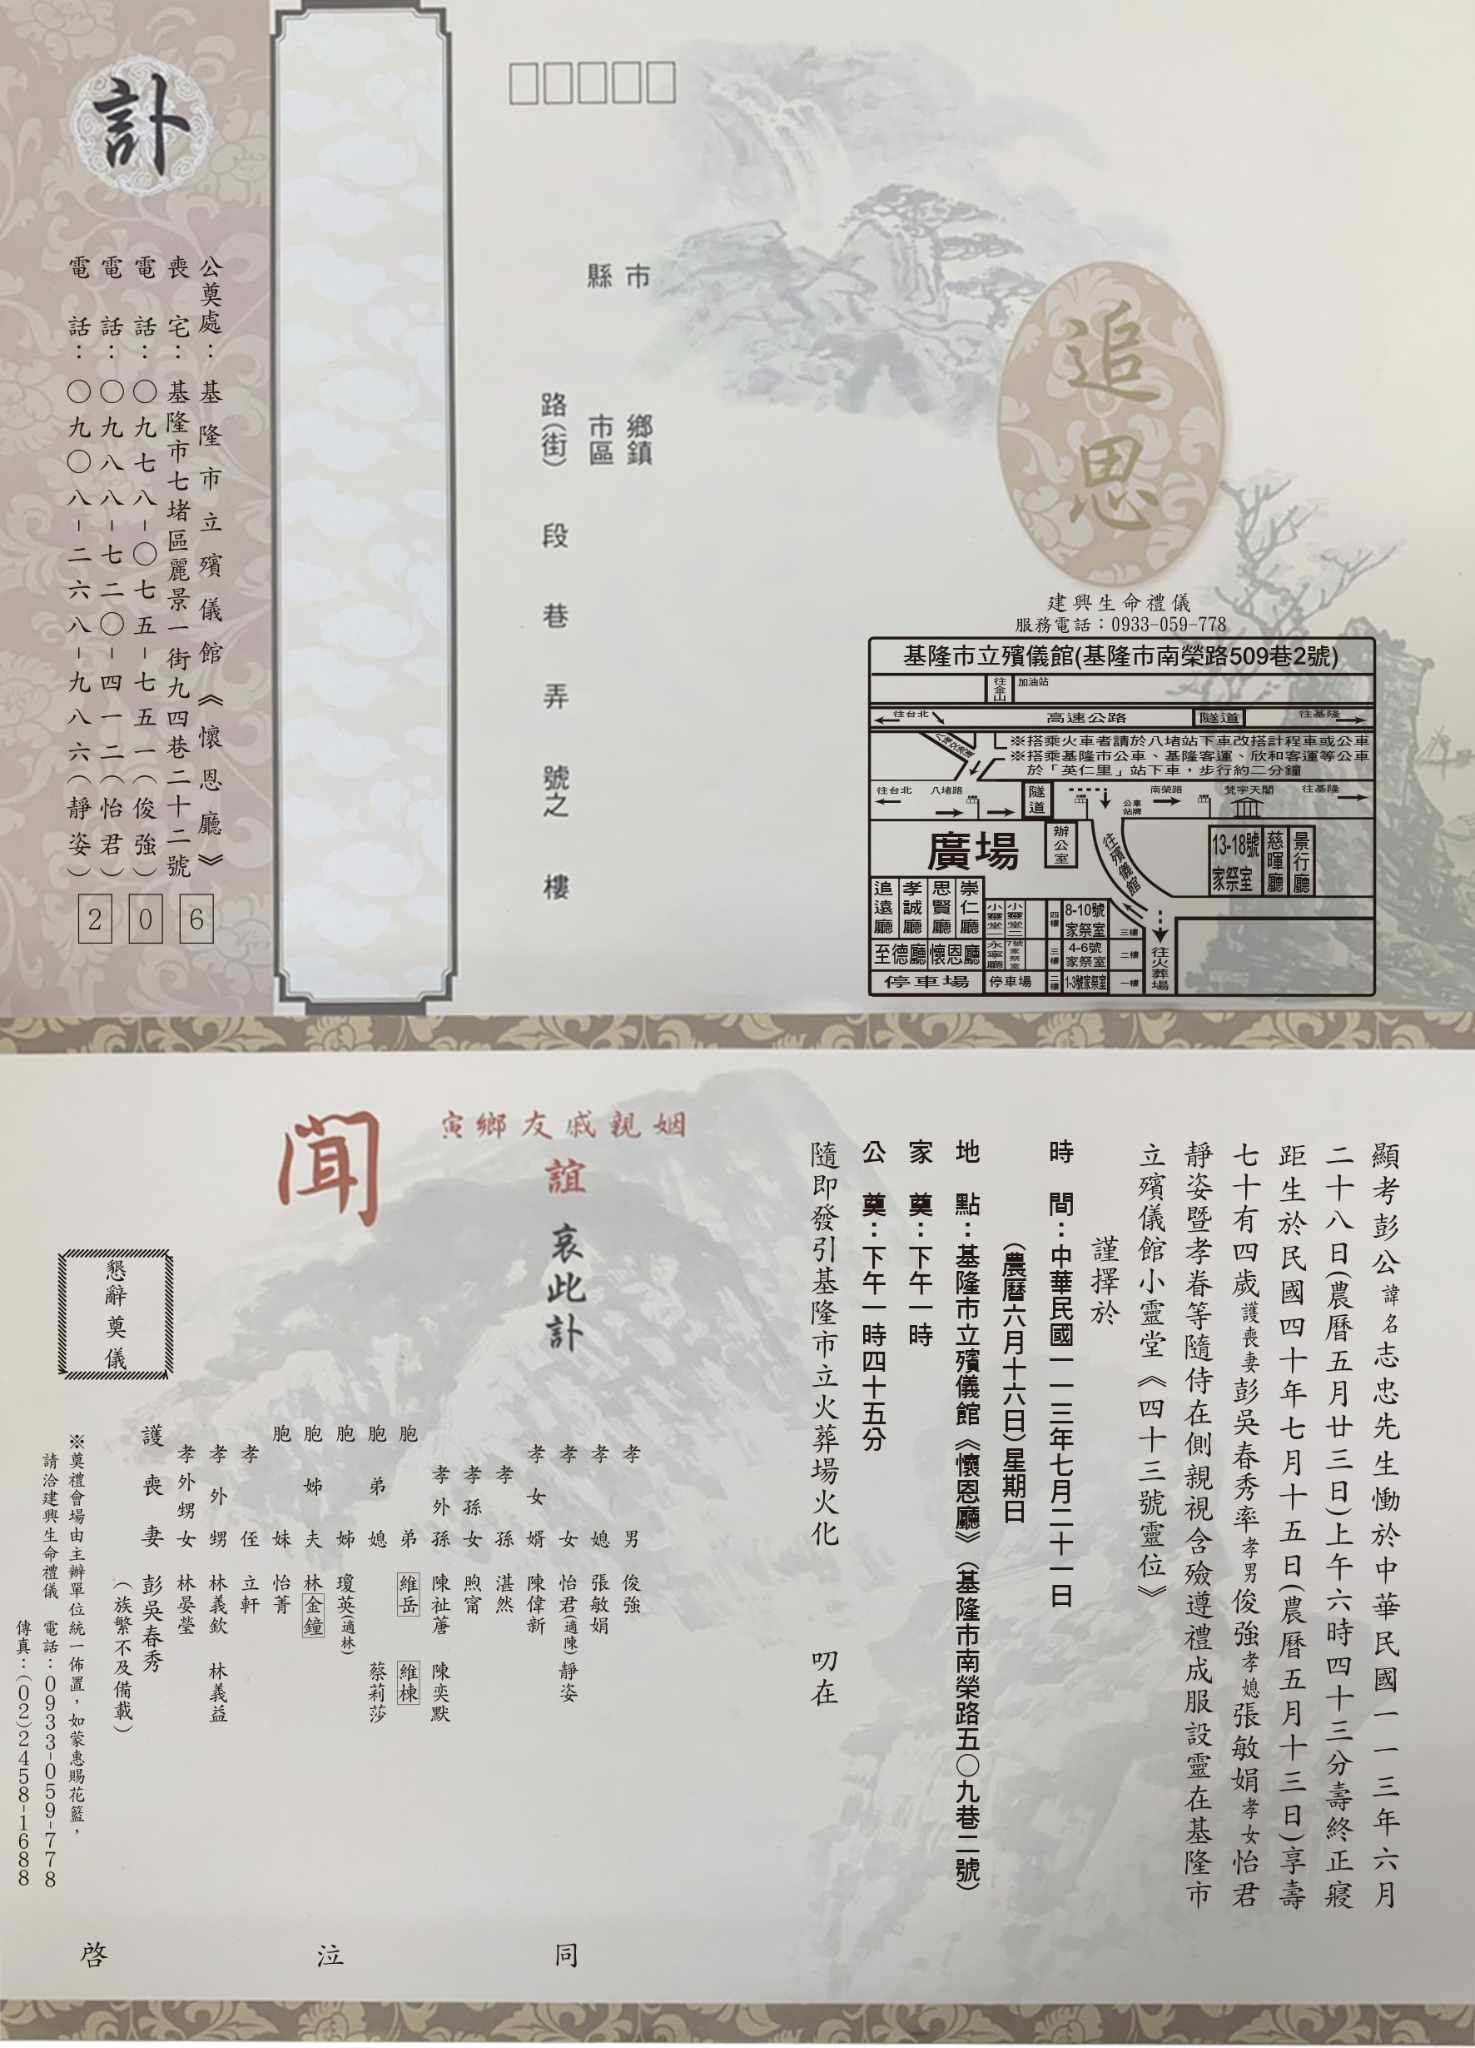 訃
公奠處：基隆市立殯儀館《懷恩廳》
喪宅：基隆市七堵區麗景一街九四巷二十二號
電話：〇九七八-〇七五-七五一(俊強)
電話：〇九八八-七二〇-四一二(怡君)
電話：〇九〇八-二六八-九八六(靜姿)
206
市
縣
鄉鎮
市區
路(街)段巷弄號之樓
追思
建興生命禮儀
服務電話：0933-059-778
基隆市立殯儀館(基隆市南榮路509巷2號)
往金山
加油站
往台北
高速公路
隧道
往基隆
※搭乘火車者請於八堵站下車改搭計程車或公車
※搭乘基隆市公車、基隆客運、欣和客運等公車
於「英仁里」站下車，步行約二分鐘
往台北
八堵路
隧道
公車站牌
南榮路
梵宇天閣
往基隆
廣場
辦公室
往殯儀館
13-18號家祭室
慈暉廳
景行廳
追遠廳
孝誠廳
思賢廳
崇仁廳
小靈堂一
小靈堂二
四樓
8-10號家祭室
三樓
至德廳
懷恩廳
永寧廳
三樓
4-6號家祭室
二樓
往火葬場
停車場
停車場
二樓
1-3號家祭室
一樓
顯考彭公諱名志忠先生慟於中華民國一一三年六月
二十八日(農曆五月廿三日)上午六時四十三分壽終正寢
距生於民國四十年七月十五日(農曆五月十三日)享壽
七十有四歲護喪妻彭吳春秀率孝男俊強孝媳張敏娟孝女怡君
靜姿暨孝眷等隨侍在側親視含殮遵禮成服設靈在基隆市
立殯儀館小靈堂《四十三號靈位》
謹擇於
時間：中華民國一一三年七月二十一日
(農曆六月十六日)星期日
地點：基隆市立殯儀館《懷恩廳》(基隆市南榮路五〇九巷二號)
家奠：下午一時
公奠：下午一時四十五分
隨即發引基隆市立火葬場火化 叨在
寅鄉友戚親姻
誼 哀此訃
聞
孝男 俊強
孝媳 張敏娟
孝女 怡君(適陳) 靜姿
孝女婿 陳偉新
孝孫 湛然
孝孫女 煦甯
孝外孫 陳祉蓎 陳奕默
胞弟 維岳 維棟
胞弟媳 蔡莉莎
胞姊 瓊英(適林)
胞姊夫 林金鐘
胞妹 怡菁
孝侄 立軒
孝外甥 林義欽 林義益
孝外甥女 林晏瑩
護喪妻 彭吳春秀
(族繁不及備載)
同泣啓
懇辭奠儀
※奠禮會場由主辦單位統一佈置，如蒙惠賜花籃，
請洽建興生命禮儀 電話：0933-059-778
傳真：(02)2458-1688